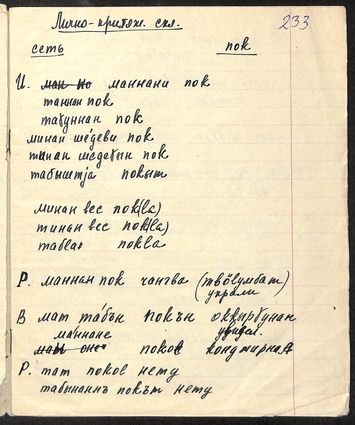 Лично-притяж. скл.
233
сеть пок
И. ман но маннани пок
таннан пок
табуннан пок
минан шедеви пок
тинан шедевын пок
табыштја покыт
минан вес пок(ла)
тинан вес пок(ла)
таблат покла
Р. маннан пок чангва (твölумбат)
украли
В мат табън покън оккырбунан
маннане увидел.
маы оне покое конджирнад
Р. тат покое нету
табынанъ покът нету